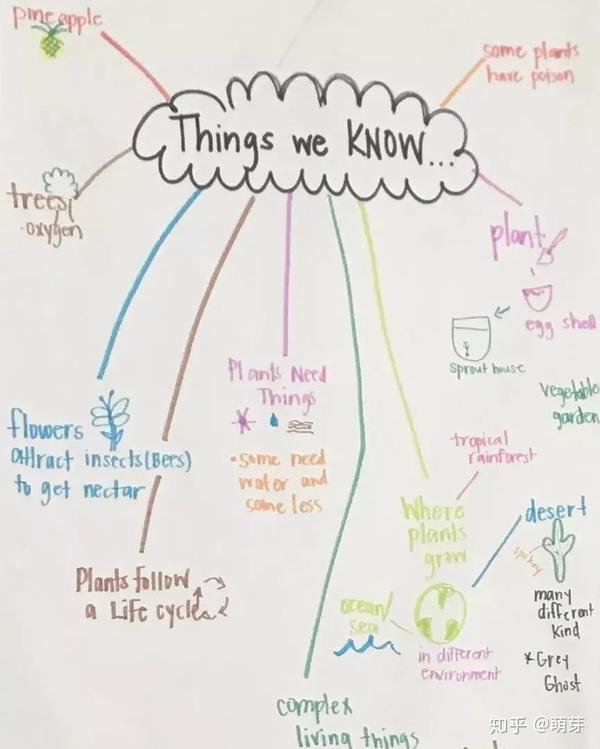 pineapple
some plants
have poison
Things we KNOW...
trees
·oxygen
plant
egg shell
sprout house
vegetable
garden
Plants Need
Things
·some need
water and
some less
flowers
attract insects (Bees)
to get nectar
tropical
rainforest
Where
plants
grow
desert
spikey
many
different
kind
*Grey
Ghost
ocean/
sea
in different
environment
Plants follow
a Life cycle
complex
living things
知乎 @萌芽